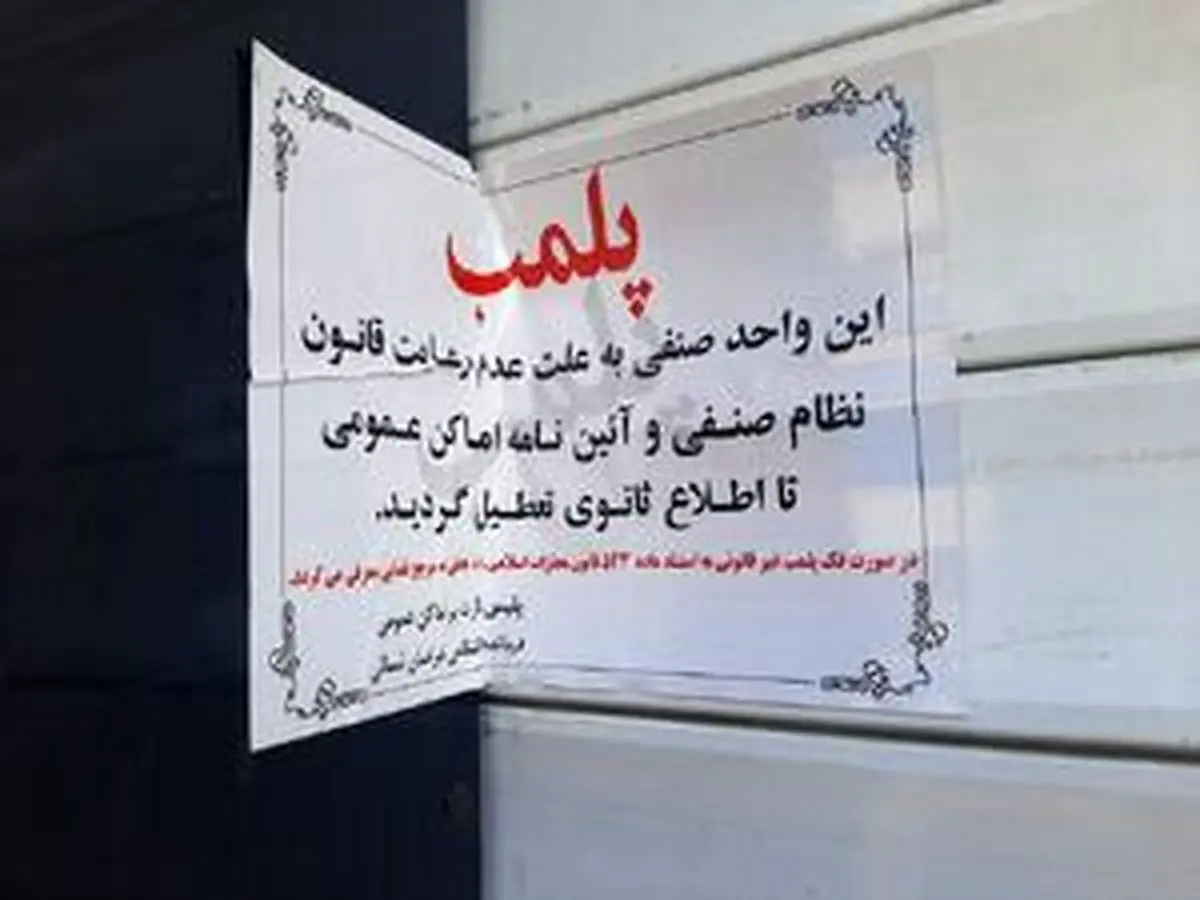 پلمب
این واحد صنفی به علت عدم رعایت قانون
نظام صنفی و آئین نامه اماکن عمومی
تا اطلاع ثانوی تعطیل گردید.
در صورت فک پلمب غیر قانونی به استناد ماده قانون مجازات اسلامی، مرجع قضایی معرفی می گردند
پلیس نظارت بر اماکن عمومی
فرماندهی انتظامی خراسان شمالی